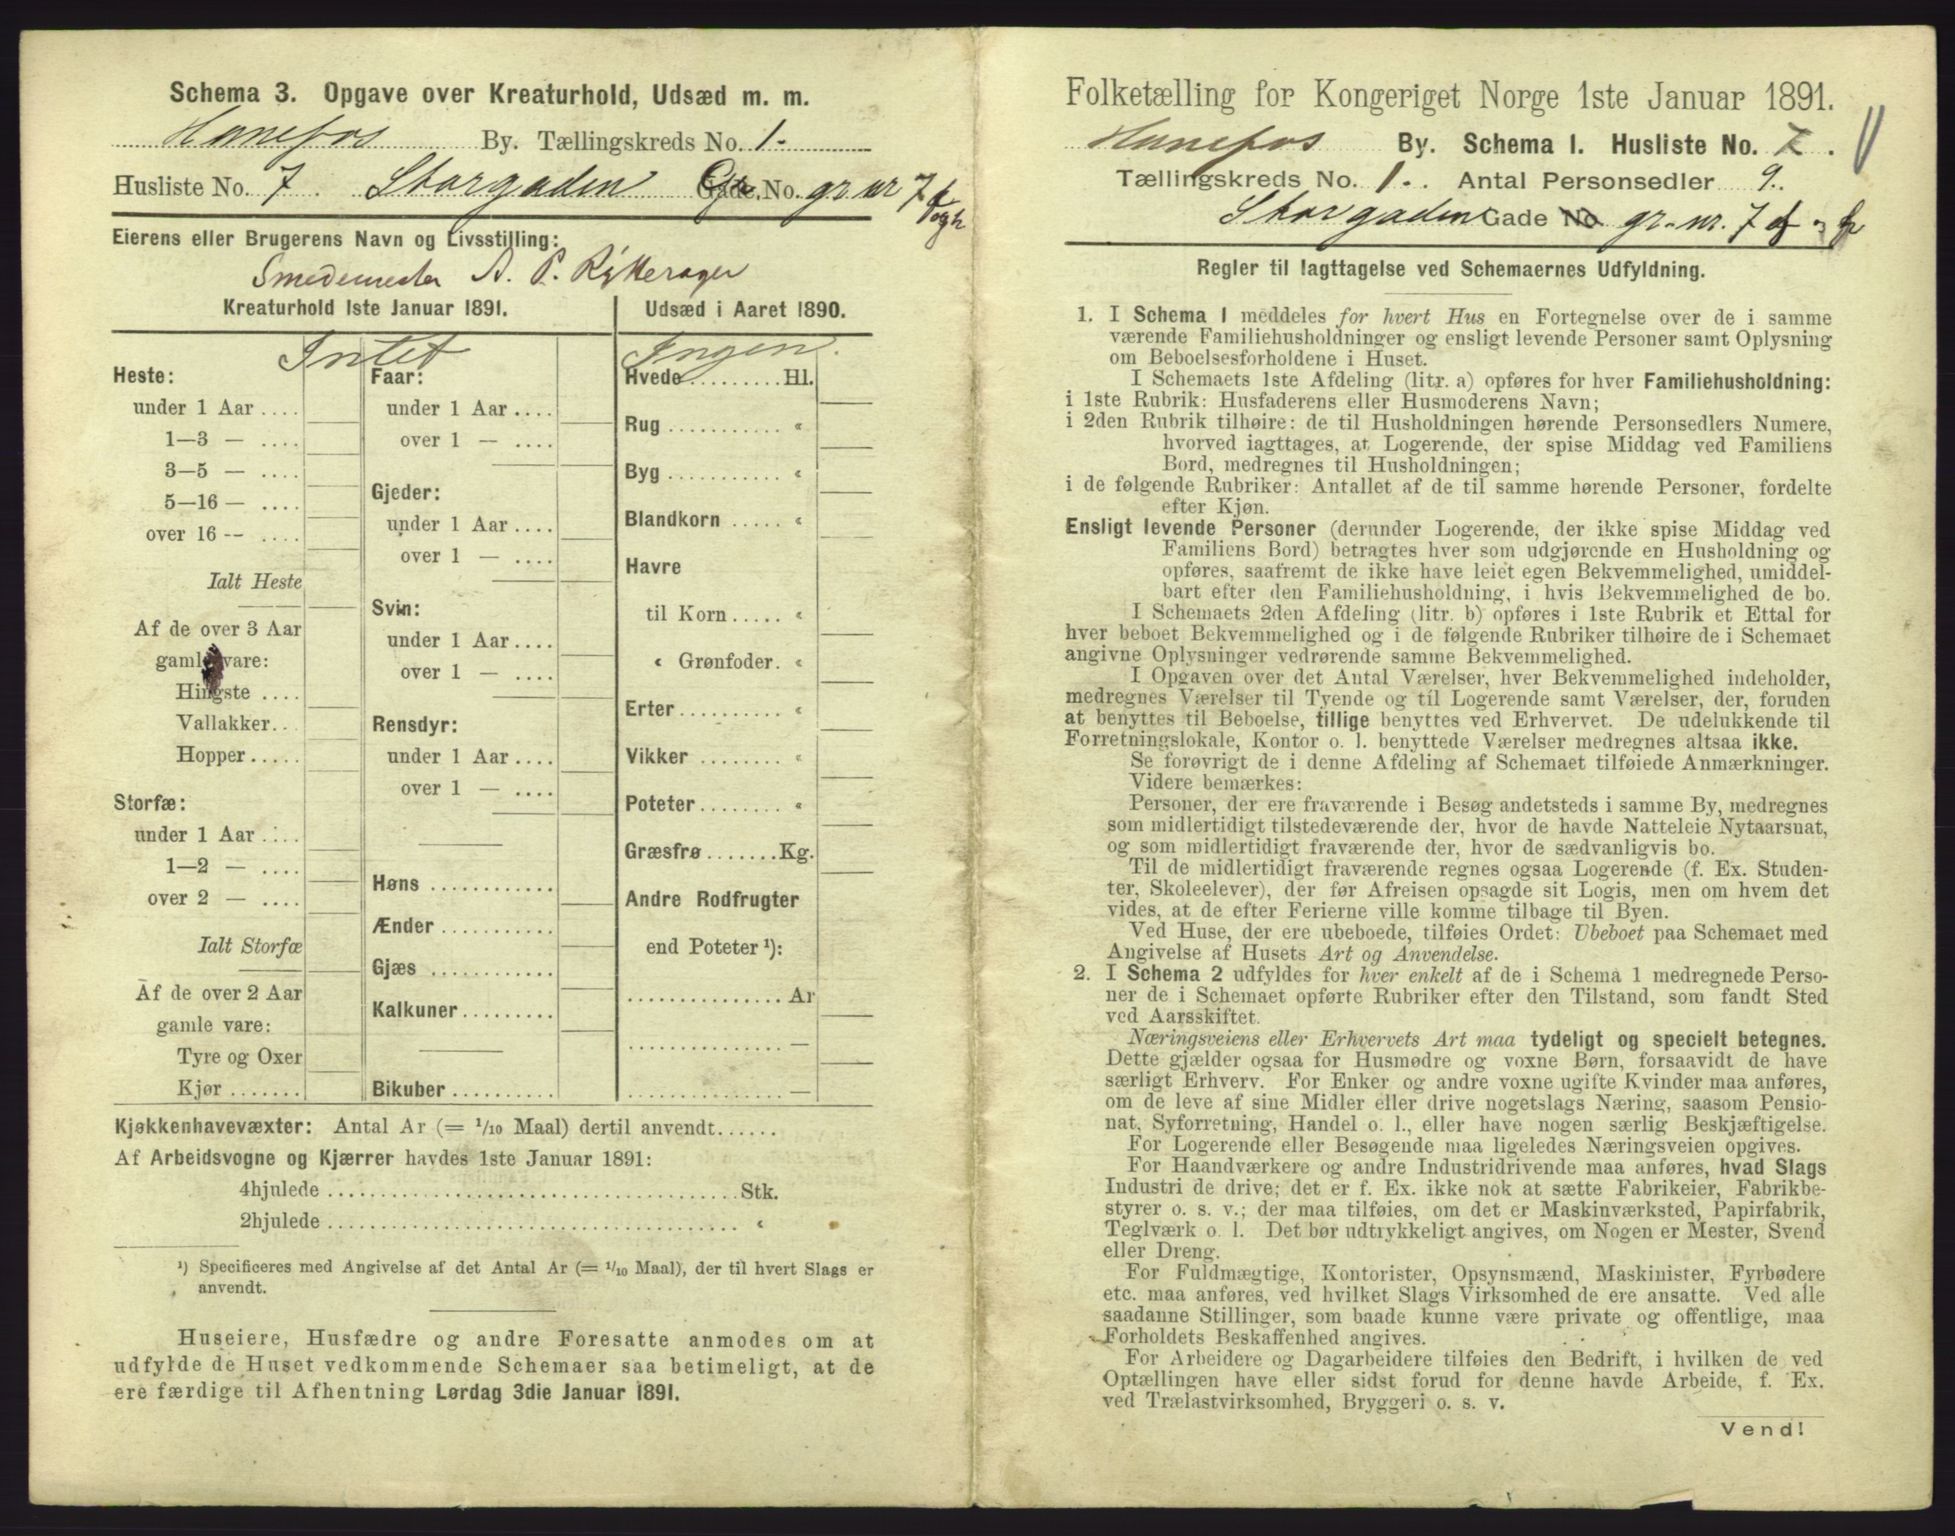 Schema 3. Opgave over Kreaturhold, Udsæd m. m.
Hønefos By. Tællingskreds No. 1.
Husliste No. 7 Storgaden Gade, No. gr nr 7 f og h
Eierens eller Brugerens Navn og Livsstilling:
Smedemester A. P.
Kreaturhold 1ste Januar 1891.
Intet
Heste:
under 1 Aar ....
1—3 — ....
3—5 — ....
5—16 — ....
over 16 -- ....
Ialt Heste
Af de over 3 Aar
gamle vare:
Hingste ....
Vallakker...
Hopper.....
Storfæ:
under 1 Aar ....
1—2 — ....
over 2 — ....
Ialt Storfæ
Af de over 2 Aar
gamle vare:
Tyre og Oxer
Kjør.......
Faar:
under 1 Aar ....
over 1 — ....
Gjeder:
under 1 Aar ....
over 1 — ....
Svin:
under 1 Aar ....
over 1 — ....
Rensdyr:
under 1 Aar ....
over 1 — ....
Høns ...........
Ænder ...........
Gjæs ...........
Kalkuner.........
Bikuber ..........
Udsæd i Aaret 1890.
Ingen.
Hvede.........Hl.
Rug ........... «
Byg ........... «
Blandkorn ..... «
Havre
til Korn..... «
« Grønfoder. «
Erter.......... «
Vikker ........ «
Poteter........ «
Græsfrø.......Kg.
Andre Rodfrugter
end Poteter ¹):
...............Ar
............... —
............... —
Kjøkkenhavevæxter: Antal Ar (= 1/10 Maal) dertil anvendt......
Af Arbeidsvogne og Kjærrer havdes 1ste Januar 1891:
4hjulede ......................................Stk.
2hjulede ...................................... «
¹) Specificeres med Angivelse af det Antal Ar (= 1/10 Maal), der til hvert Slags er
anvendt.
Huseiere, Husfædre og andre Foresatte anmodes om at
udfylde de Huset vedkommende Schemaer saa betimeligt, at de
ere færdige til Afhentning Lørdag 3die Januar 1891.
Folketælling for Kongeriget Norge 1ste Januar 1891.
Hønefos By. Schema I. Husliste No. 7.
Tællingskreds No. 1. Antal Personsedler 9.
Storgaden Gade No gr. nr. 7 f
Regler til Iagttagelse ved Schemaernes Udfyldning.
1. I Schema 1 meddeles for hvert Hus en Fortegnelse over de i samme
værende Familiehusholdninger og ensligt levende Personer samt Oplysning
om Beboelsesforholdene i Huset.
I Schemaets 1ste Afdeling (litr. a) opføres for hver Familiehusholdning:
i 1ste Rubrik: Husfaderens eller Husmoderens Navn;
i 2den Rubrik tilhøire: de til Husholdningen hørende Personsedlers Numere,
hvorved iagttages, at Logerende, der spise Middag ved Familiens
Bord, medregnes til Husholdningen;
i de følgende Rubriker: Antallet af de til samme hørende Personer, fordelte
efter Kjøn.
Ensligt levende Personer (derunder Logerende, der ikke spise Middag ved
Familiens Bord) betragtes hver som udgjørende en Husholdning og
opføres, saafremt de ikke have leiet egen Bekvemmelighed, umiddel-
bart efter den Familiehusholdning, i hvis Bekvemmelighed de bo.
I Schemaets 2den Afdeling (litr. b) opføres i 1ste Rubrik et Ettal for
hver beboet Bekvemmelighed og i de følgende Rubriker tilhøire de i Schemaet
angivne Oplysninger vedrørende samme Bekvemmelighed.
I Opgaven over det Antal Værelser, hver Bekvemmelighed indeholder,
medregnes Værelser til Tyende og til Logerende samt Værelser, der, foruden
at benyttes til Beboelse, tillige benyttes ved Erhvervet. De udelukkende til
Forretningslokale, Kontor o. l. benyttede Værelser medregnes altsaa ikke.
Se forøvrigt de i denne Afdeling af Schemaet tilføiede Anmærkninger.
Videre bemærkes:
Personer, der ere fraværende i Besøg andetsteds i samme By, medregnes
som midlertidigt tilstedeværende der, hvor de havde Natteleie Nytaarsnat,
og som midlertidigt fraværende der, hvor de sædvanligvis bo.
Til de midlertidigt fraværende regnes ogsaa Logerende (f. Ex. Studen-
ter, Skoleelever), der før Afreisen opsagde sit Logis, men om hvem det
vides, at de efter Ferierne ville komme tilbage til Byen.
Ved Huse, der ere ubeboede, tilføies Ordet: Ubeboet paa Schemaet med
Angivelse af Husets Art og Anvendelse.
2. I Schema 2 udfyldes for hver enkelt af de i Schema 1 medregnede Perso-
ner de i Schemaet opførte Rubriker efter den Tilstand, som fandt Sted
ved Aarsskiftet.
Næringsveiens eller Erhvervets Art maa tydeligt og specielt betegnes.
Dette gjælder ogsaa for Husmødre og voxne Børn, forsaavidt de have
særligt Erhverv. For Enker og andre voxne ugifte Kvinder maa anføres,
om de leve af sine Midler eller drive nogetslags Næring, saasom Pensio-
nat, Syforretning, Handel o. l., eller have nogen særlig Beskjæftigelse.
For Logerende eller Besøgende maa ligeledes Næringsveien opgives.
For Haandværkere og andre Industridrivende maa anføres, hvad Slags
Industri de drive; det er f. Ex. ikke nok at sætte Fabrikeier, Fabrikbe-
styrer o. s. v.; der maa tilføies, om det er Maskinværksted, Papirfabrik,
Teglværk o. l. Det bør udtrykkeligt angives, om Nogen er Mester, Svend
eller Dreng.
For Fuldmægtige, Kontorister, Opsynsmænd, Maskinister, Fyrbødere
etc. maa anføres, ved hvilket Slags Virksomhed de ere ansatte. Ved alle
saadanne Stillinger, som baade kunne være private og offentlige, maa
Forholdets Beskaffenhed angives.
For Arbeidere og Dagarbeidere tilføies den Bedrift, i hvilken de ved
Optællingen have eller sidst forud for denne havde Arbeide, f. Ex.
ved Trælastvirksomhed, Bryggeri o. s. v.
Vend!